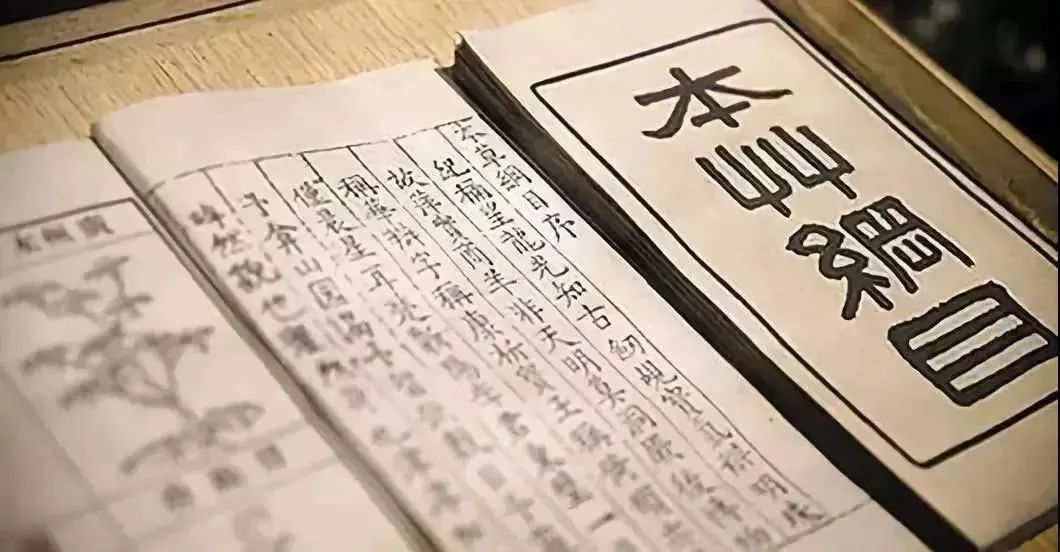 本草綱目
本草綱目序
紀稱望龍光知古劒覘寶氣辨明珠
故萍實商羊非天明莫洞厥後博物
稱華辯字稱康析寶玉稱倚頓
僅晨星耳楚蘄陽李君東璧一
予弇山園謁予留飲數日予
睟然貌也癯然